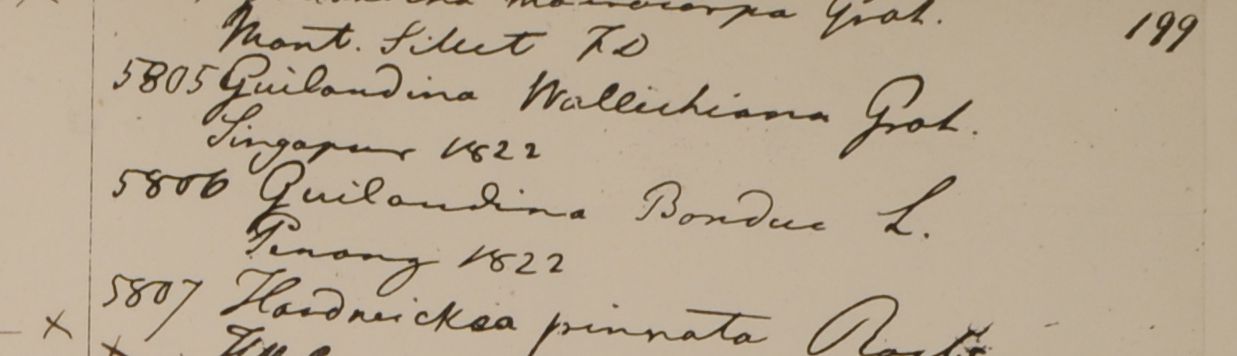 macrocarpa Grah.
199
Mont. Silet FD
5805 Guilandina Wallichiana Grah.
Singapur 1822
5806 Guilandina Bonduc L.
Penang 1822
5807 Hardwickea pinnata Roxb.